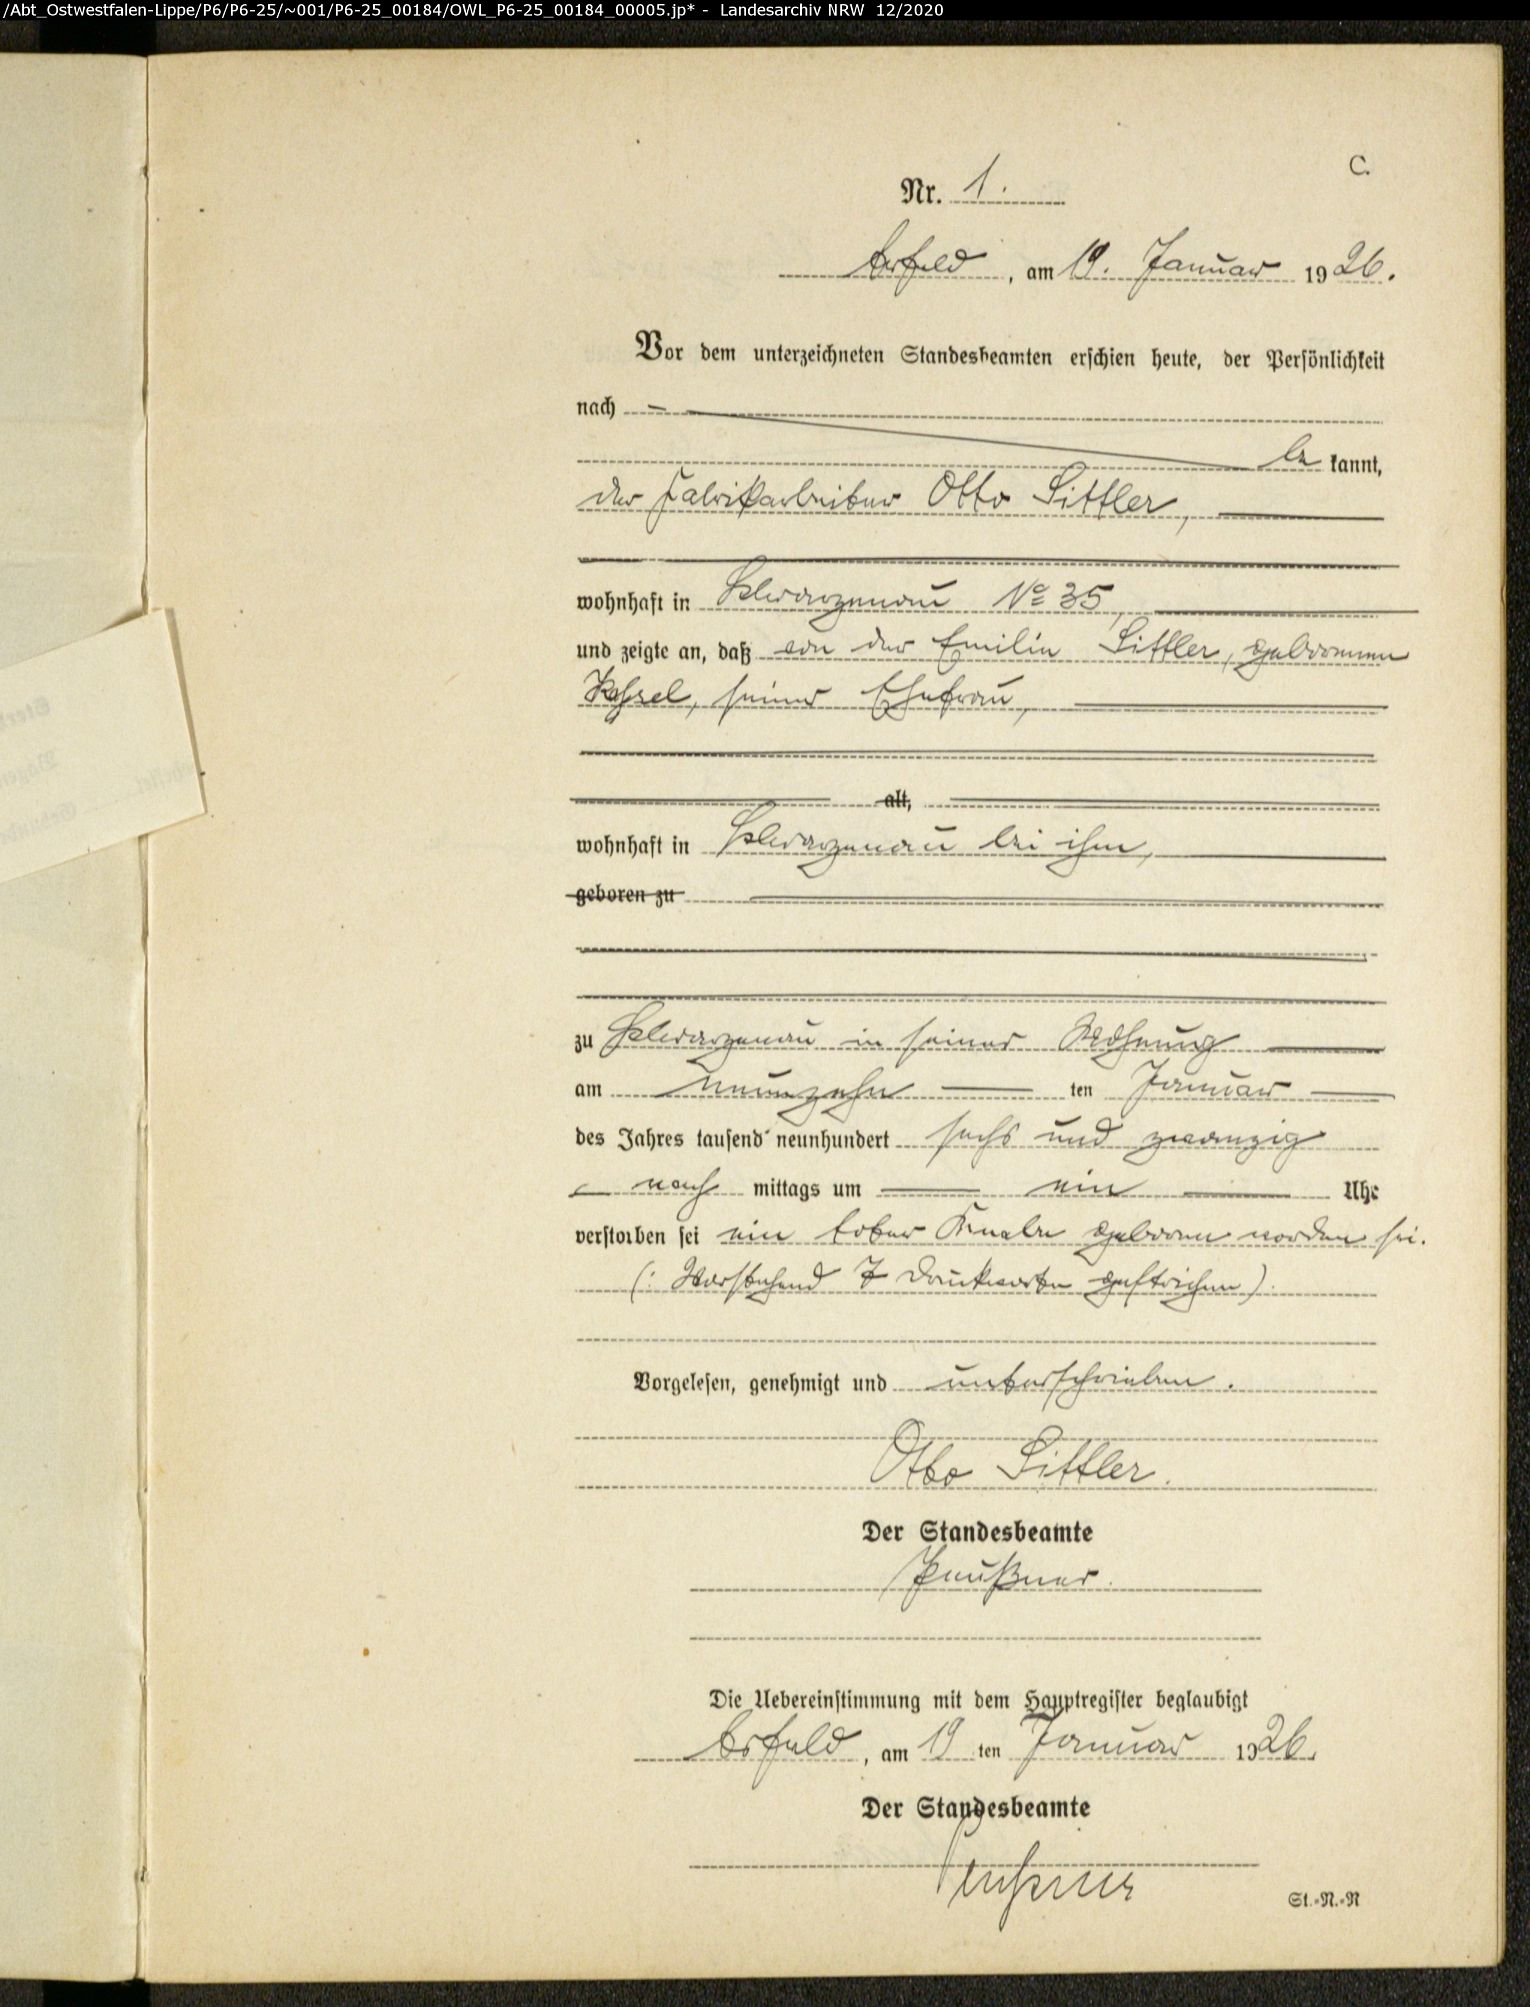 /Abt_Ostwestfalen-Lippe/P6/P6-25/~001/P6-25_00184/OWL_P6-25_00184_00005.jp* - Landesarchiv NRW 12/2020
C.
Nr. 1.
, am 19. Januar 1926.
Vor dem unterzeichneten Standesbeamten erschien heute, der Persönlichkeit
nach —
be kannt,
der Fabrikarbeiter Otto Sittler,
wohnhaft in No 35,
und zeigte an, daß von der Emilie Sittler, geborenen
seiner Ehefrau,
alt,
wohnhaft in bei ihm,
geboren zu
zu in seiner Wohnung
am neunzehn ten Januar
des Jahres tausend neunhundert sechs und zwanzig
nach mittags um ein Uhr
verstorben sei ein toter Knabe geboren worden sei.
(: Vorstehend 7 Druckworte gestrichen).
Vorgelesen, genehmigt und unterschrieben.
Otto Sittler.
Der Standesbeamte
Die Uebereinstimmung mit dem Hauptregister beglaubigt
, am 19 ten Januar 1926.
Der Standesbeamte
St.-N.-N